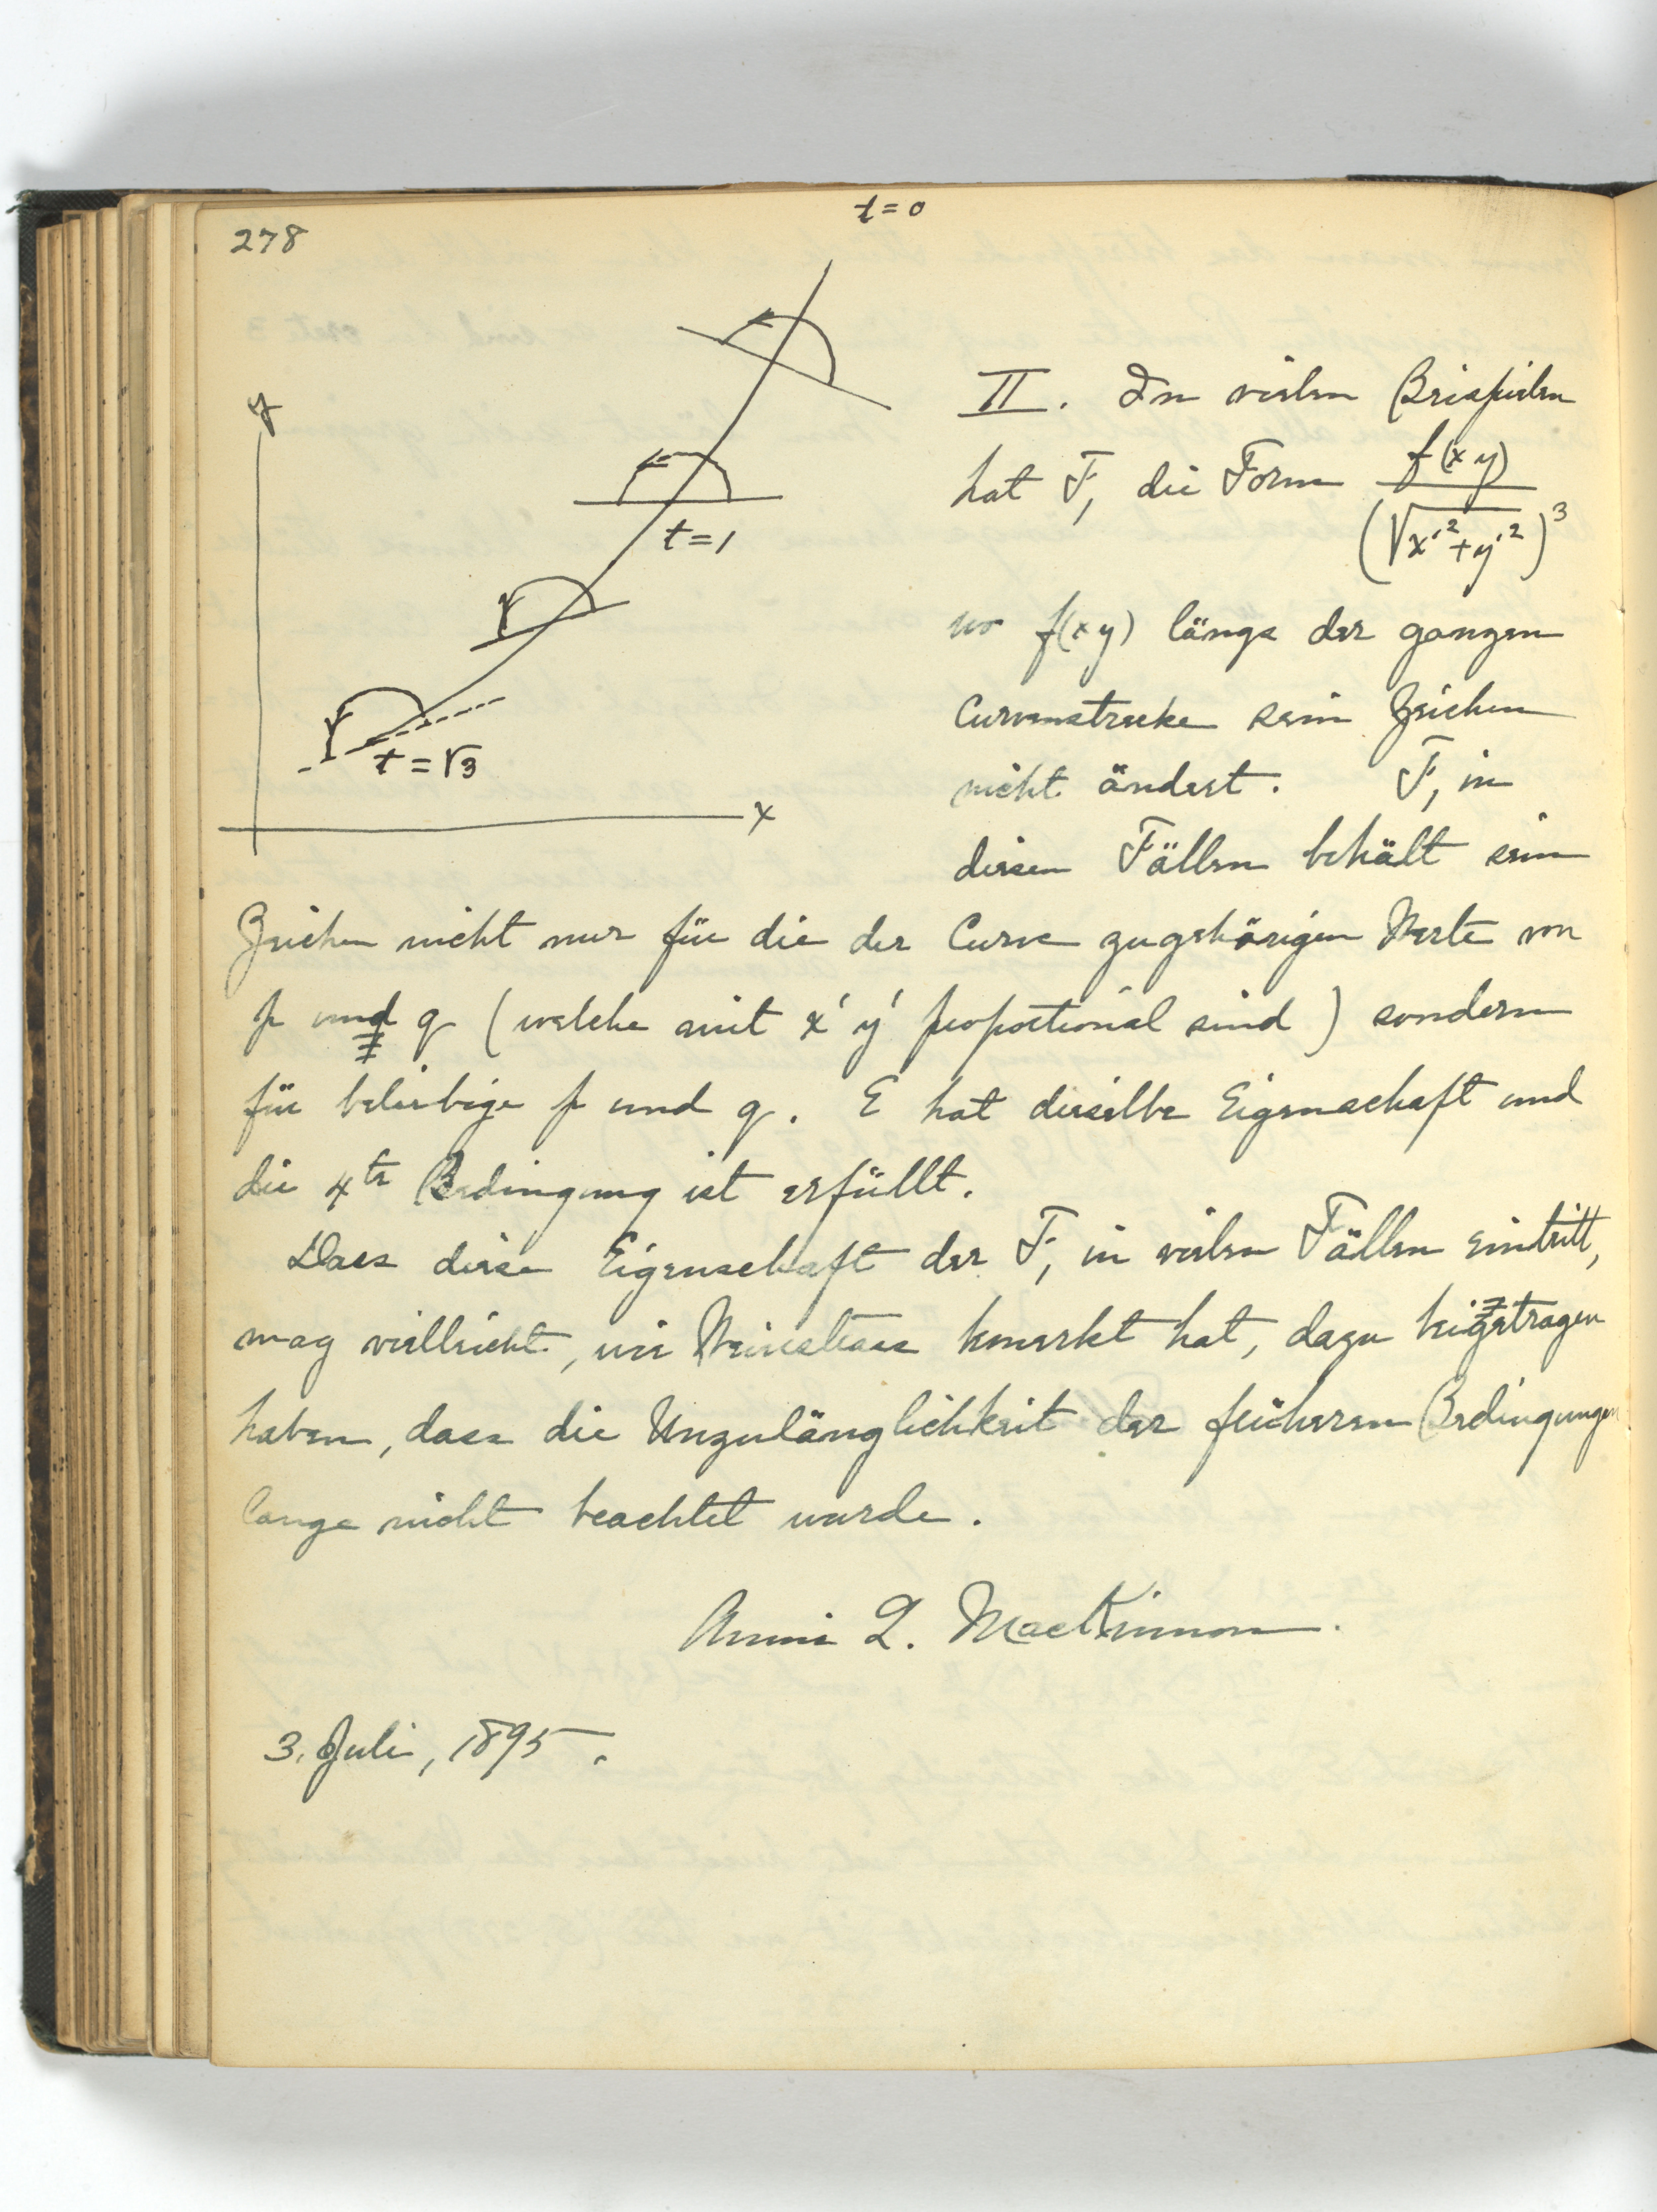 278
t = 0
y
t = 1
t = √3
x
II. In vielen Beispielen
hat F₁ die Form f(xy) / (√x'²+y'²)³
wo f(xy) längs der ganzen
Curvenstrecke sein Zeichen
nicht ändert. F₁ in
diesen Fällen behält sein
Zeichen nicht nur für die der Curve zugehörigen Werte von
p und q (welche mit x' y' proportional sind) sondern
für beliebige p und q. E hat dieselbe Eigenschaft und
die 4te Bedingung ist erfüllt.
Dass diese Eigenschaft der F₁ in vielen Fällen eintritt,
mag vielleicht, wie Weierstrass bemerkt hat, dazu beigetragen
haben, dass die Unzulänglichkeit der früheren Bedingungen
lange nicht beachtet wurde.
Annie L. MacKinnon.
3. Juli, 1895.